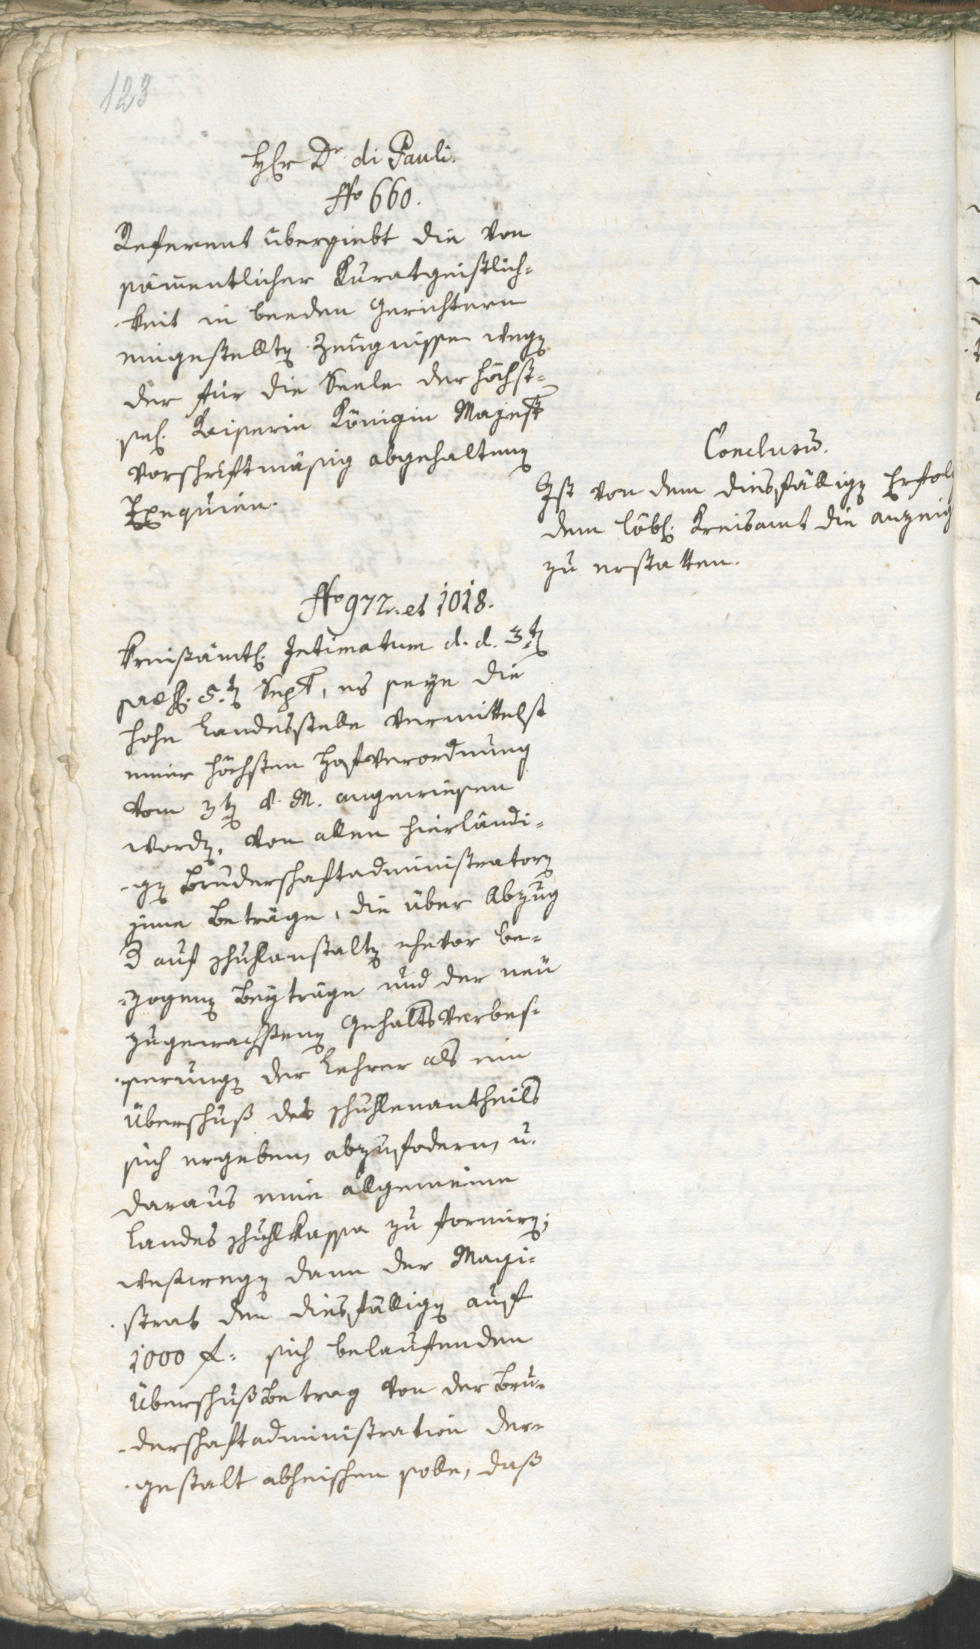 123
Hℓr Dr. di Pauli.
No 660.
Referent übergiebt die von
säm̅entlicher Kuratgeistlich-
keit in beeden Gerichtern
eingestellte Zeugnissen wegen
der für die Seele der höchst-
seel. Kaiserin Königin Majestt
vorschriftmäsig abgehaltenen
Exequien.
Conclusum.
Ist von dem diesfälligen Erfolg
dem löbl. Kreisamt die anzeig
zu erstatten.
No 972. et 1018.
Kreisämtl. Intimatum d. d. 3ten
præs. 5.ten Sept, es seye die
hohe Landesstelle vermittelst
einer höchsten Hofverordnung
vom 3ten v. M. angewiesen
worden, von allen hierländi-
gen Bruderschaftadministratoren
jene Beträge, die über Abzug
d auf schuhlanstalten ehevor be-
zogenen Beyträge und der neu
zugewachsenen Gehaltsverbes-
serungen der Lehrer als ein
Überschuß des schuhlenantheils
sich ergeben, abzufodern, u.
daraus eine allgemeine
Landes schuhlkassa zu formiren;
westwegen dann der Magi-
strat den diesfälligen auf
1000 f. sich belaufenden
Überschußbetrag von der Bru-
derschaftadministration der-
gestalt abheischen solle, daß